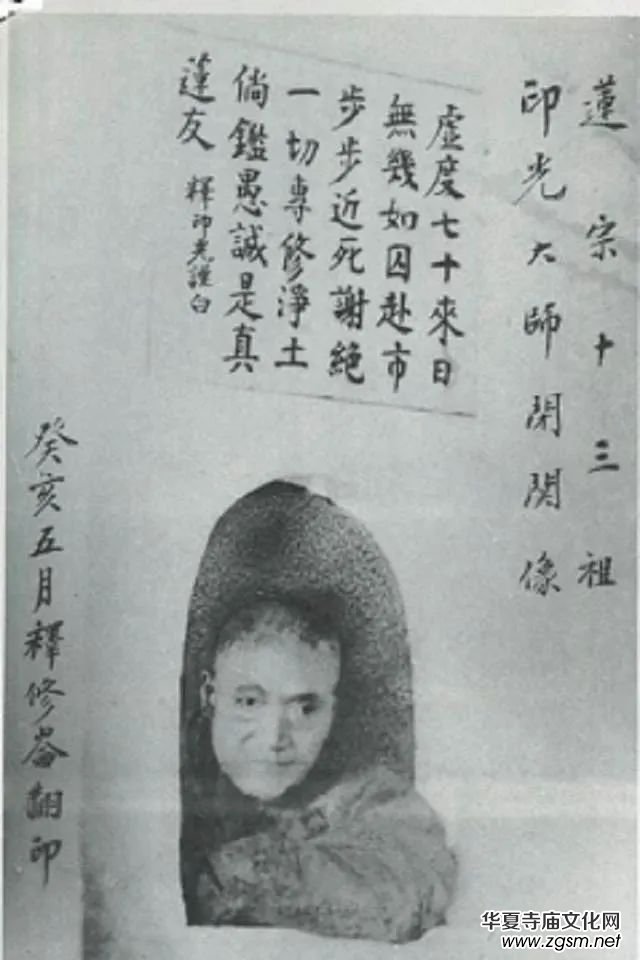 蓮宗十三祖
印光大師閉關像
虛度七十來日
無幾如囚赴市
步步近死謝絕
一切專修淨土
倘鑑愚誠是真
蓮友 釋印光謹白
癸亥五月釋修崙翻印
华夏寺庙文化网
www.zgsm.net